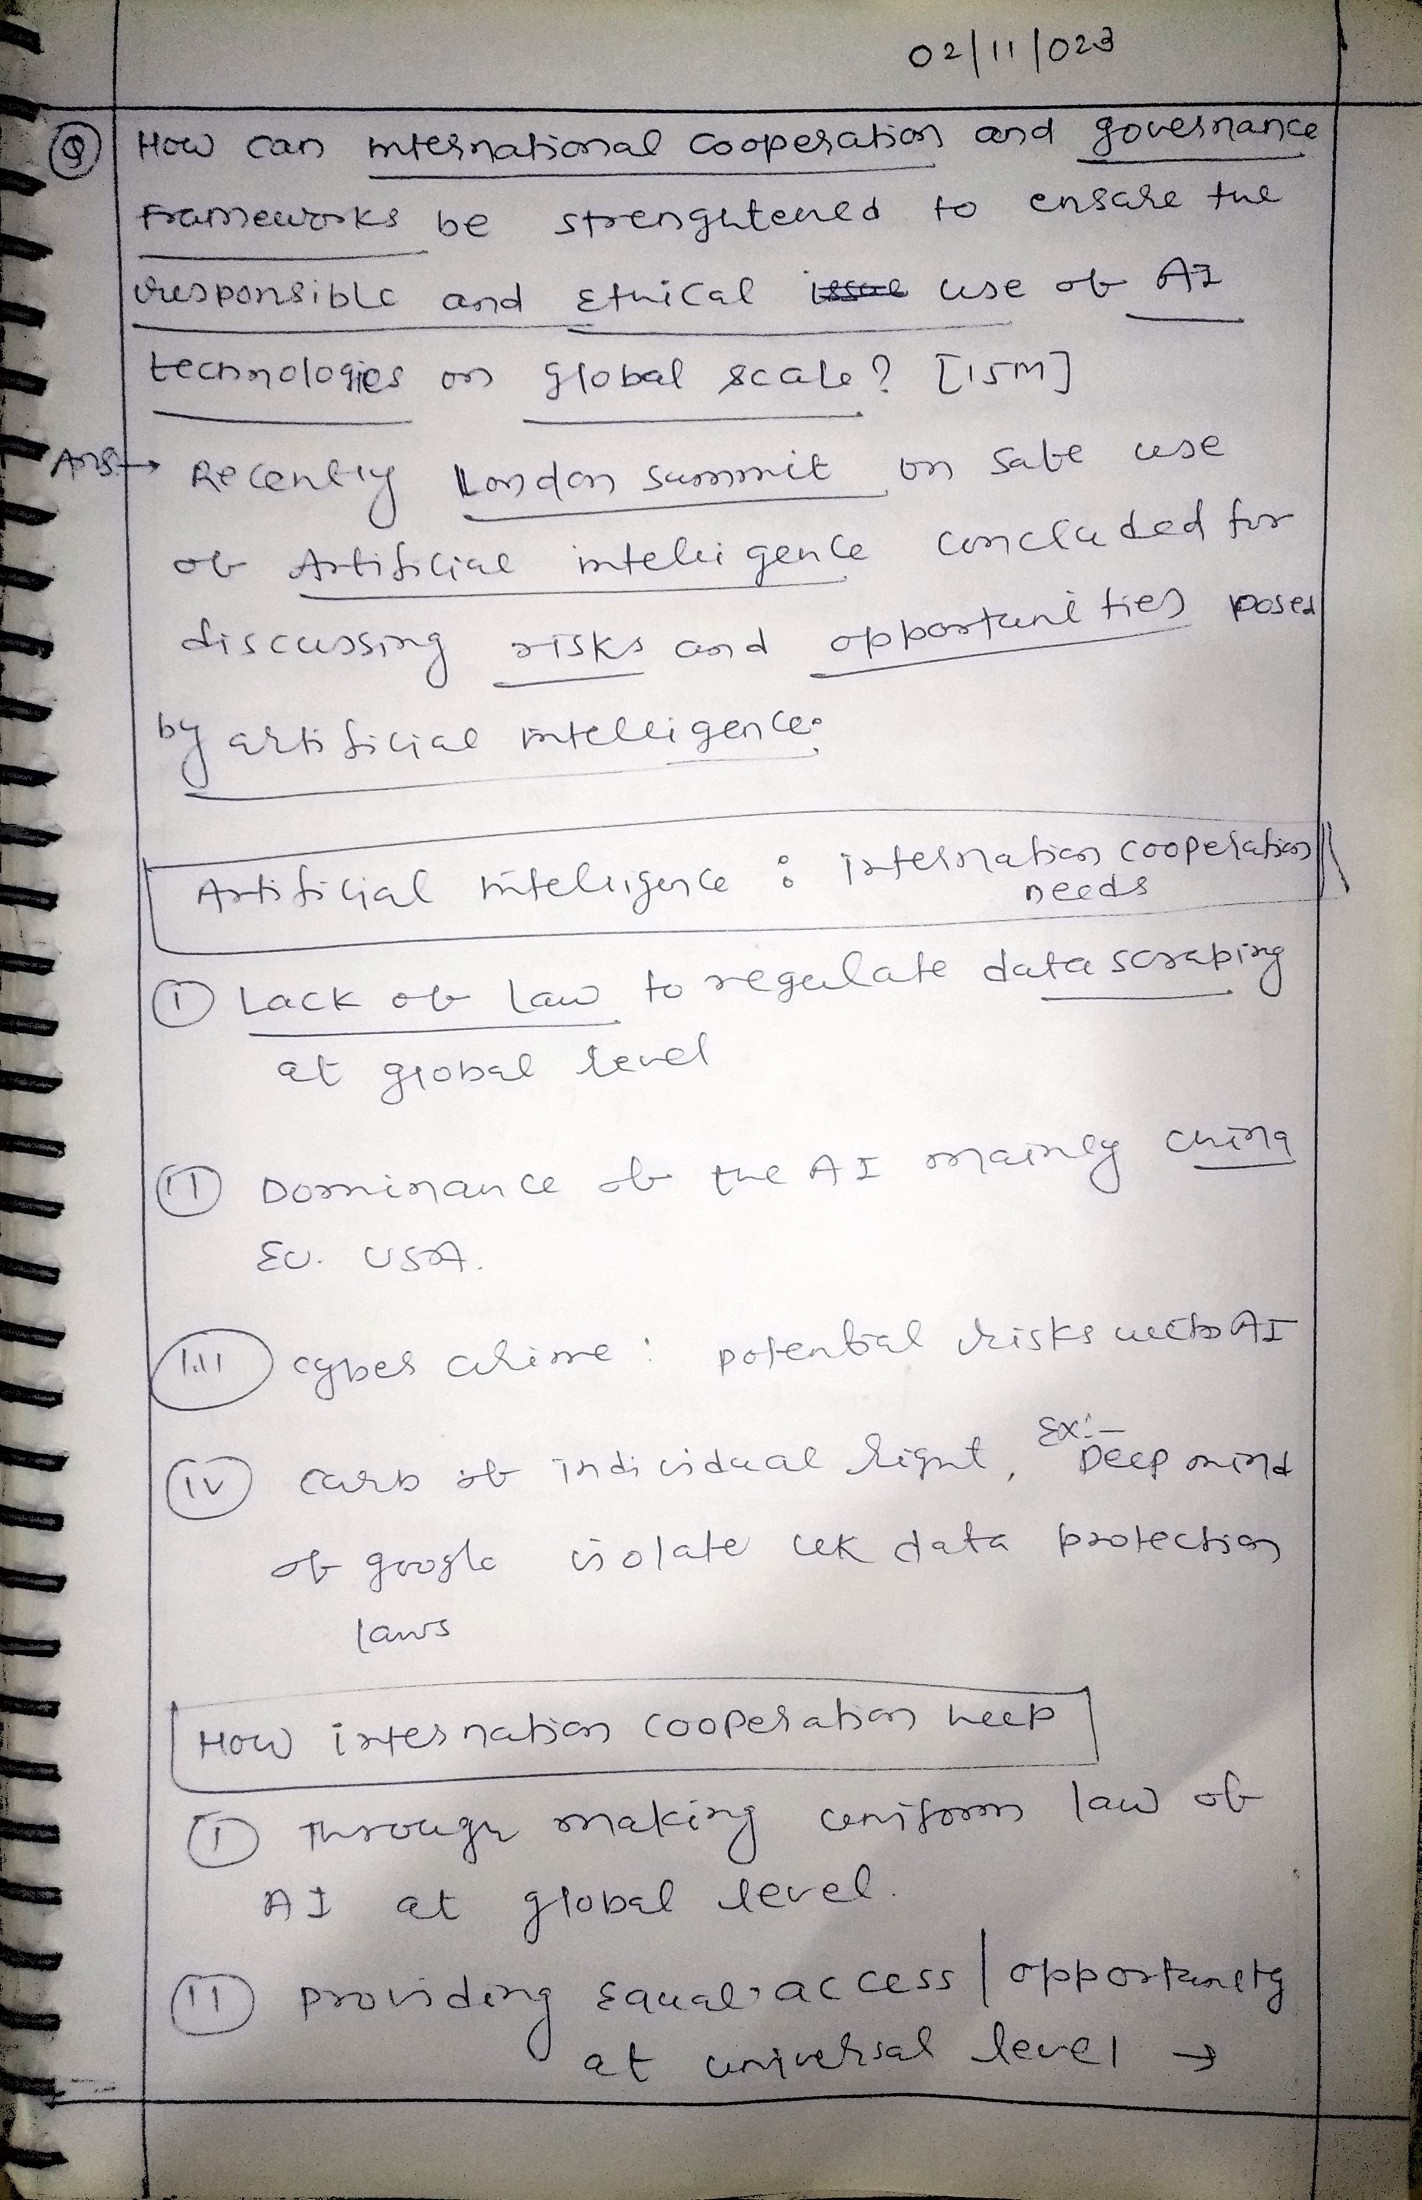 02/11/023
Q How can international cooperation and governance
frameworks be strenghtened to ensure the
responsible and Ethical issue use of AI
technologies on global scale? [15M]
Ans → Recently London summit on safe use
of Artificial intelligence concluded for
discussing risks and opportunities posed
by artificial intelligence.
Artificial intelligence : internation cooperation
needs
(I) Lack of law to regulate data scraping
at global level
(II) Dominance of the AI mainly China
EU. USA.
(III) cyber crime : potential risks with AI
(IV) curb of individual right, Ex:- Deep mind
of google violate UK data protection
laws
How internation cooperation help
(I) Through making uniform law of
AI at global level.
(II) providing Equal access / opportunity
at universal level →